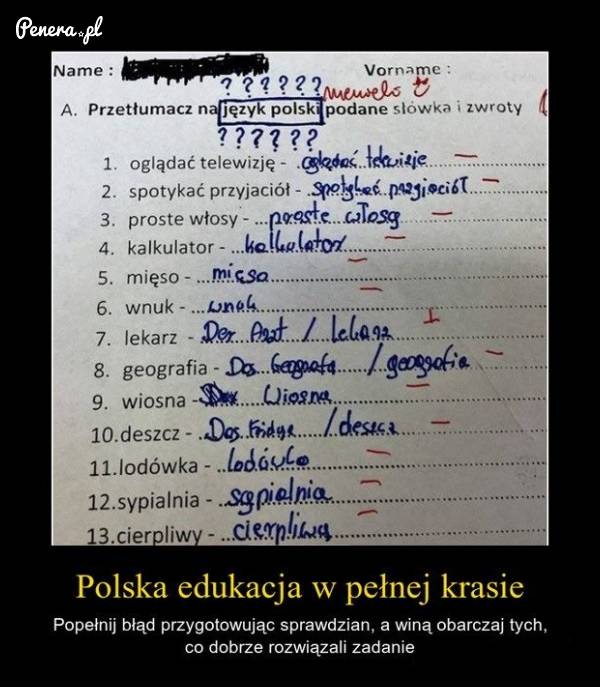 Penera.pl
Name : Vorname :
? ? ? ? ? ?
A. Przetłumacz na język polski podane słówka i zwroty
? ? ? ? ? ?
1. oglądać telewizję - oglądać telewizje
2. spotykać przyjaciół - spotykać przyjaciół
3. proste włosy - proste włosy
4. kalkulator - kalkulator
5. mięso - mięso
6. wnuk - wnuk
7. lekarz - Der Arzt / lekarz
8. geografia - Das Geografa / geografia
9. wiosna - Wiosna
10.deszcz - Das Fridge / deszcz
11.lodówka - lodówka
12.sypialnia - sypialnia
13.cierpliwy - cierpliwy
Polska edukacja w pełnej krasie
Popełnij błąd przygotowując sprawdzian, a winą obarczaj tych,
co dobrze rozwiązali zadanie